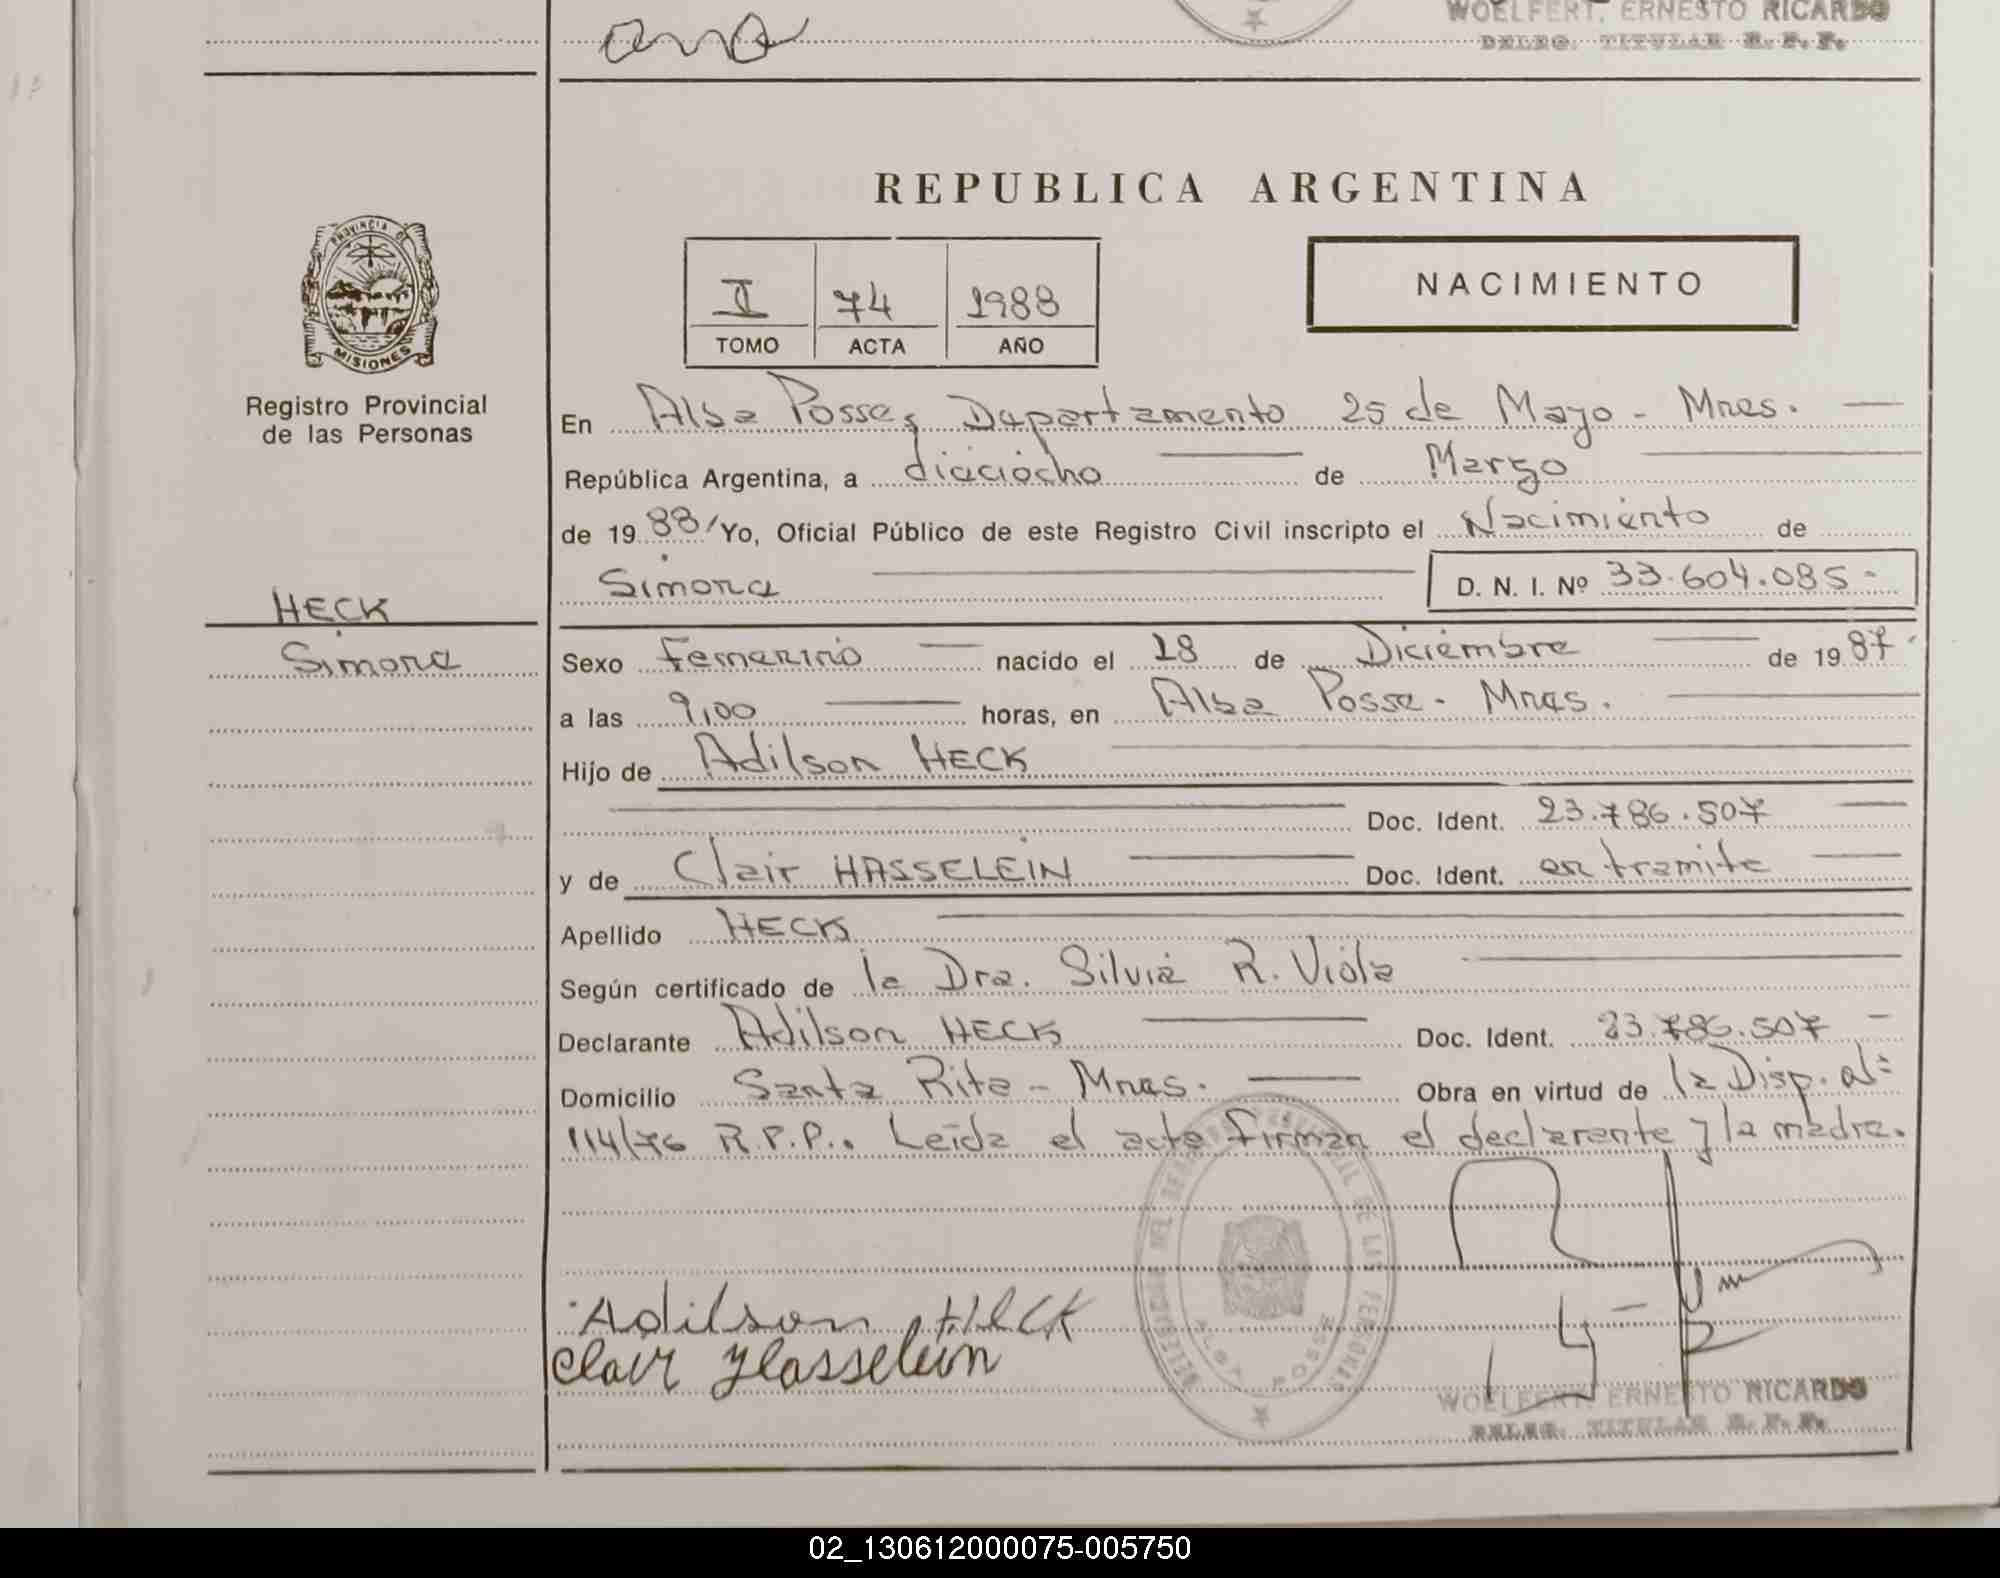 ana
WOELFERT, ERNESTO RICARDO
DELEG. TITULAR R. P. P.
PROVINCIA DE
MISIONES
Registro Provincial
de las Personas
HECK
Simona
REPUBLICA ARGENTINA
II 74 1988
TOMO ACTA AÑO
NACIMIENTO
En Alba Posse, Departamento 25 de Mayo - Mnes.
República Argentina, a dieciocho de Marzo
de 1988/ Yo, Oficial Público de este Registro Civil inscripto el Nacimiento de
Simona D. N. I. Nº 33.604.085-
Sexo Femenino nacido el 18 de Diciembre de 1987
a las 9,00 horas, en Alba Posse - Mnes.
Hijo de Adilson HECK
Doc. Ident. 23.786.507
y de Clair HASSELEIN Doc. Ident. en tramite
Apellido HECK
Según certificado de la Dra. Silvia R. Viola
Declarante Adilson HECK Doc. Ident. 23.786.507 -
Domicilio Santa Rita - Mnes. Obra en virtud de la Disp.
114/76 R.P.P.. Leida el acta firman el declarante y la madre.
Adilson HECK
Clair Hasselein
ALBA POSSE
WOELFERT, ERNESTO RICARDO
DELEG. TITULAR R. P. P.
02_130612000075-005750